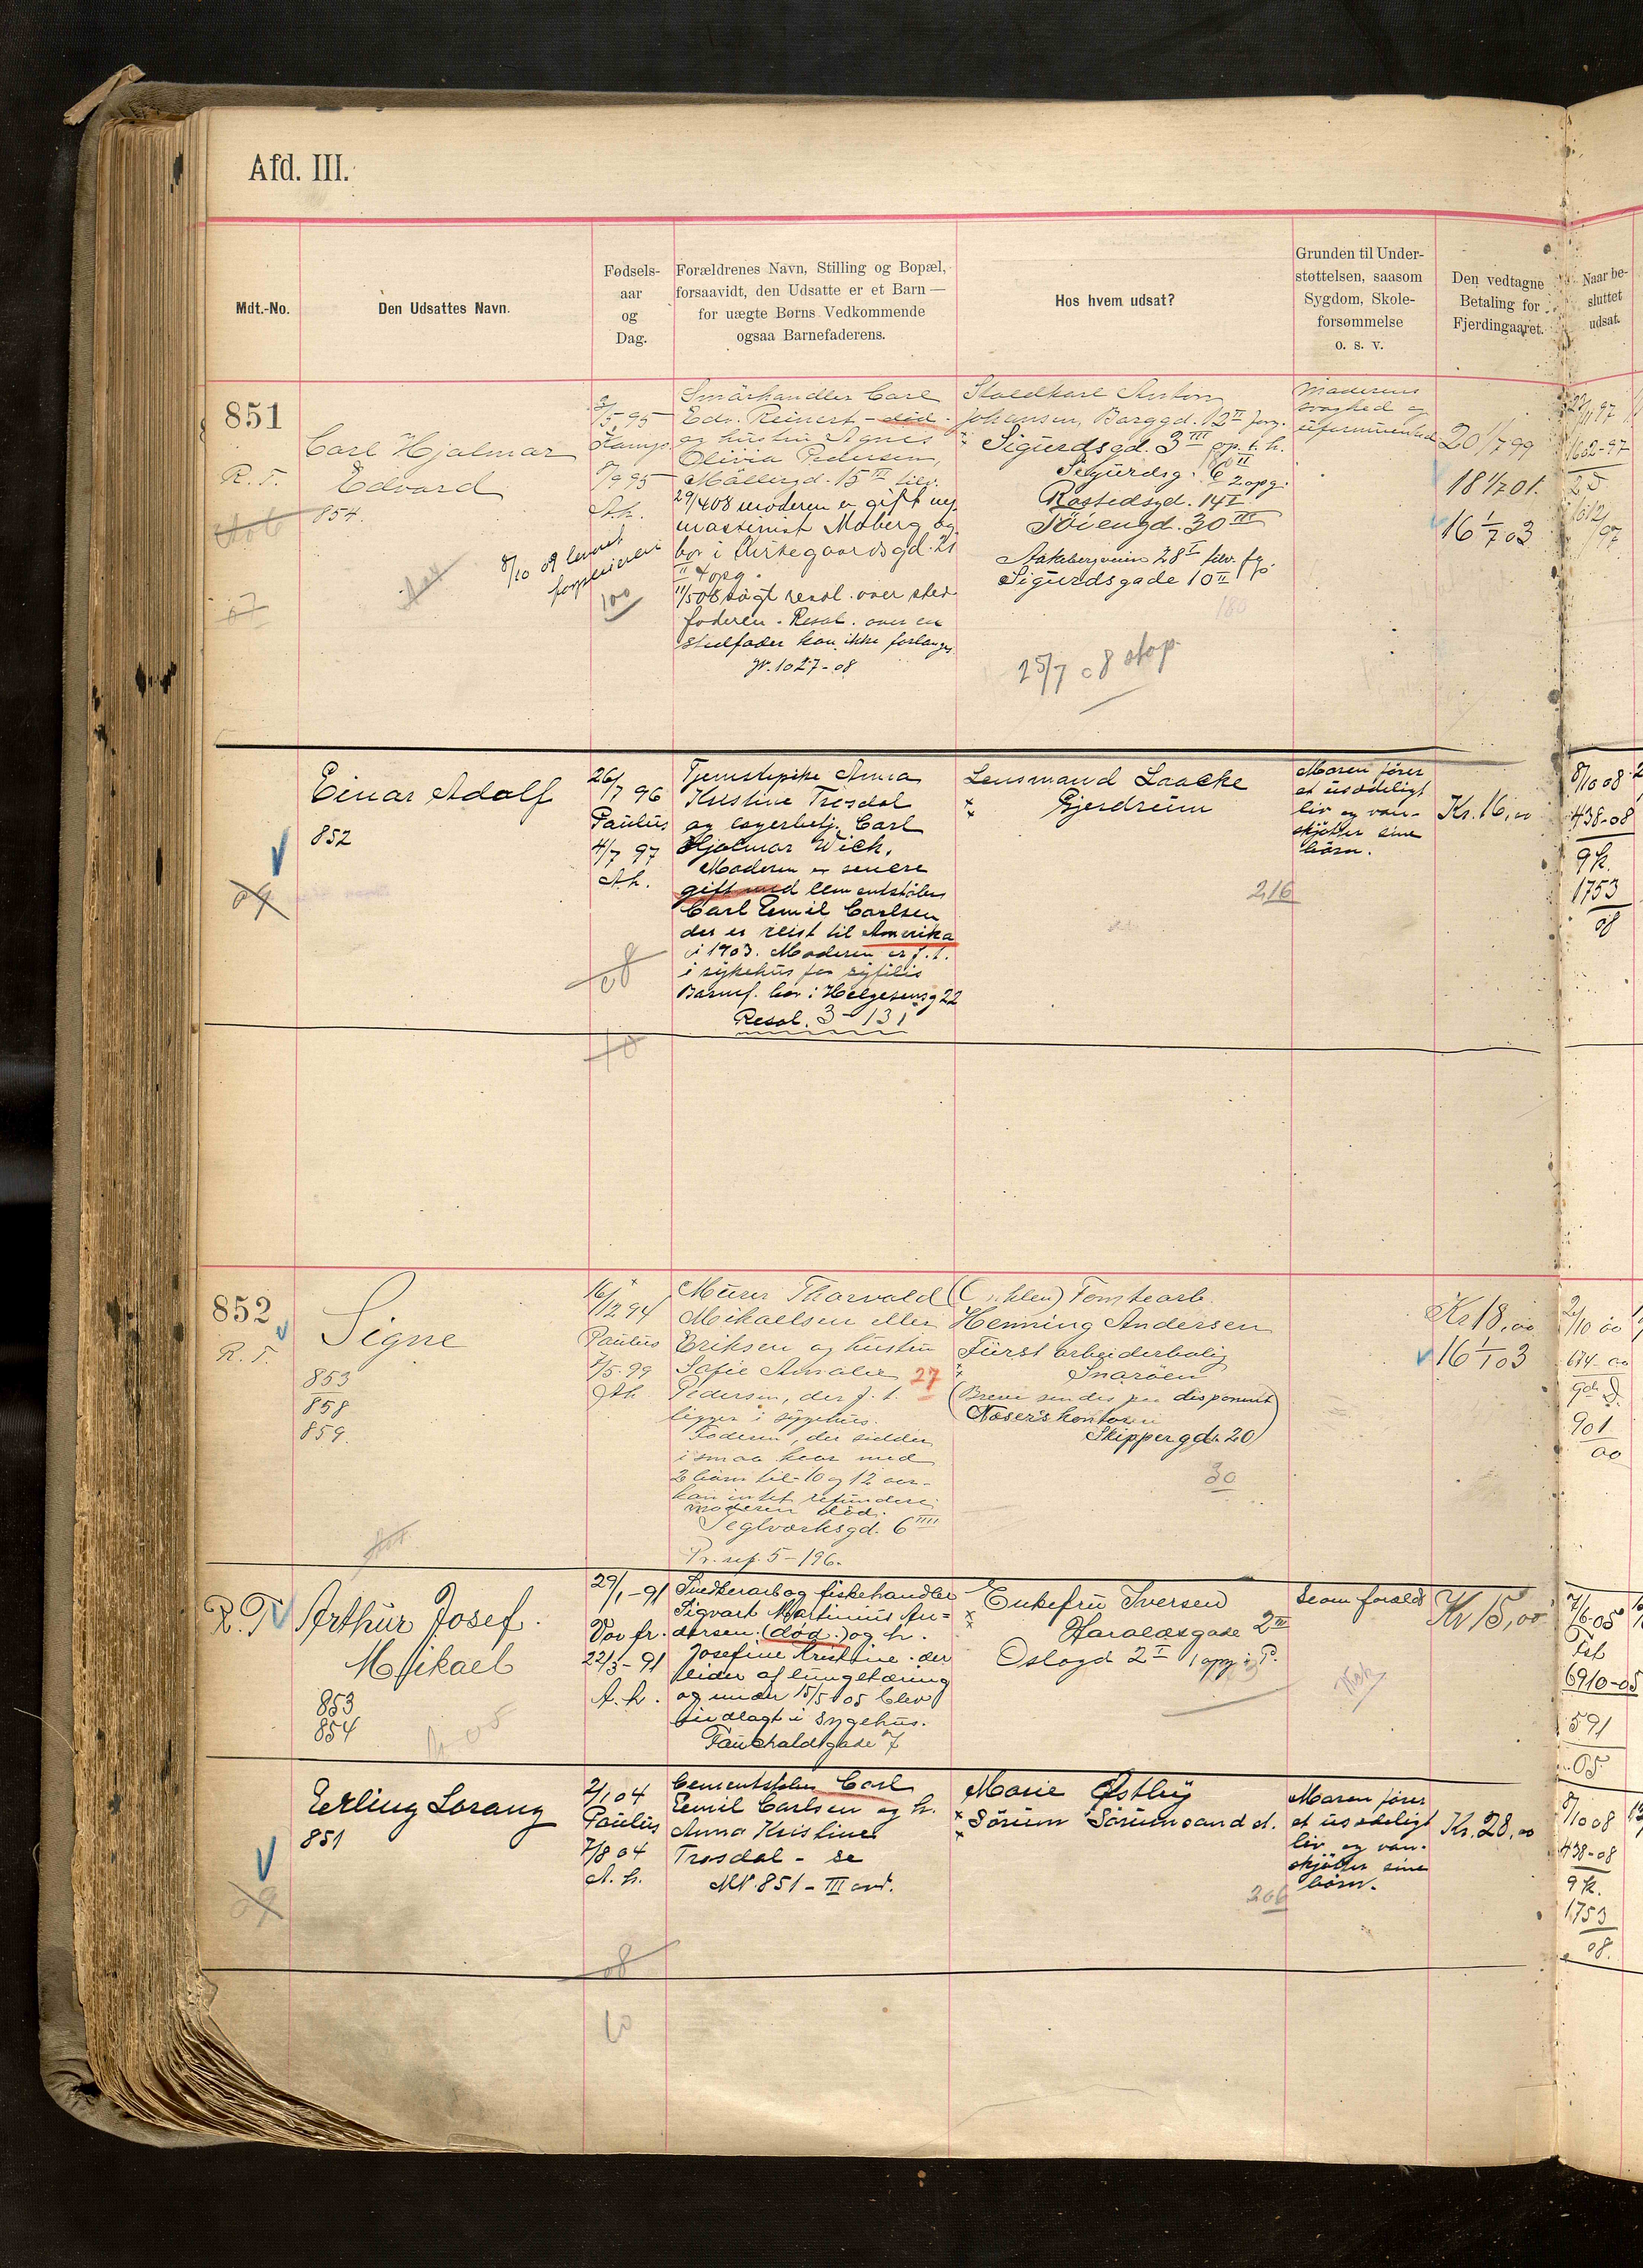 Afd. III.
Mdt.-No.
Den Udsattes Navn.
Fødsels-
aar
og
Dag.
Forældrenes Navn, Stilling og Bopæl,
forsaavidt, den Udsatte er et Barn —
for uægte Børns Vedkommende
ogsaa Barnefaderens.
Hos hvem udsat?
Grunden til Under-
støttelsen, saasom
Sygdom, Skole-
forsømmelse
o. s. v.
Den vedtagne
Betaling for
Fjerdingaaret.
Naar be-
sluttet
udsat.
851
R. T.
Carl Hjalmar
Edvard
854.
8/10 09 leveret
3/5 95
Kamps
8/9 95
A.h.
100
Smørhandler Carl
Edv. Reinert - død
og hustru Agnes
Olivia Pedersen,
Møllergd. 15 III tilv.
29/4 08 moderen er gift m/
massenist Moberg og
bor i Kirkegaardsgd. 21
II 4 opg.
11/5 08 søgt resol. over sted-
faderen. Resol. over en
stedfader kan ikke forlanges
Jr. 1027-08
Staldkarl Anton
Johansen, Borggd. 12 II forg.
Sigurdsgd. 3 III op. t. h.
Sigurdsg. 6 II
2 opg.
Rostedsgd. 14 I
Töiengd. 30 III
Aakebergveien 28 I tilv.
Sigurdsgade 10 II
180
25/7 08 stop
Moderens
svaghed og
uformuenhed
20 1/7 99
18 1/7 01.
16 1/7 03
27/11 97
1602-97
25
10/12
97
Einar Adolf
852
09
26/7 96
Paulus
4/7 97
A.h.
08
10
Tjenestepike Anna
Kristine Trosdal
og lagerbetj. Carl
Hjalmar Wick.
Moderen er senere
gift med cementstøber
Carl Emil Carlsen
der er reist til Amerika
i 1903. Moderen er f. t.
i sykehus for syfilis
Barnef. bor i Helgesensg 22
Resol. 3 - 131
Lensmand Laache
Gjerdrum
216
Moren fører
et usædeligt
liv og van-
skjøtter sine
børn.
Kr. 16,00
8/10 08
438-08
9 k.
1753
08
852
R. T.
Signe
853
858
859.
16/12 94
Paulus
7/5 99
A.h.
Murer Thorvald
Mikaelsen eller
Eriksen og hustru
Sofie Amalie 27
Pedersen, der f. t.
ligger i sygehus.
Faderen, der sidder
i smaa kaar med
2 børn til 10 og 12 aar
kan intet refundere.
moderen död.
Teglverksgd. 6 IIII
Pr. ref. 5 - 196.
(Onklen) Tomtearb.
Henning Andersen
Fürst arbeiderbolig
Snarøen
(Breve sendes paa disponent
Næsers kontor
Skippergd. 20)
30
Kr 18,00
16 1/1 03
2/10 00
674-00
901
00
R. T
Arthur Josef
Mikael
853
854
29/1-91
Vor fr.
22/3-91
A.h.
Snedkerarb og fiskehandler
Sigvart Martinius An=
dersen. (død.) og h.
Josefine Kristine. der
lider af lungetæring
og under 15/5 05 blev
indlagt i sygehus.
Fauchaldsgade 7
Enkefru Iversen
Haraldsgade 2 III
Oslogd 2 I 1 opg i G.
Som foræld
Kr 15,00
7/6-05
Fsb
6910-05
591
05
Erling Lorang
851
09
2/1 04
Paulus
7/8 04
A. h.
08
10
Cementstøber Carl
Emil Carlsen og h.
Anna Kristine
Trosdal - se
MN. 851 - III avd.
Marie Østby
Sørum Sørumsand st.
206
Moren fører
et usædeligt
liv og van-
skjøtter sine
børn.
Kr. 28,00
8/10 08
438-08
9 k.
1753
08.